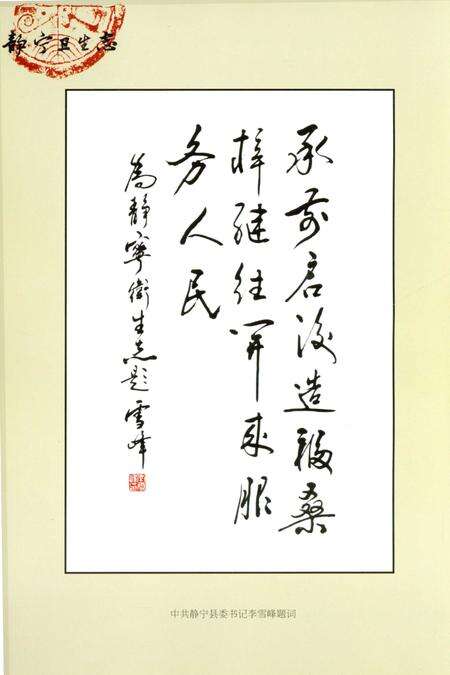 静宁卫生志
承前启后造福桑
梓继往开来服
务人民
为静宁卫生志题 雪峰
中共静宁县委书记李雪峰题词